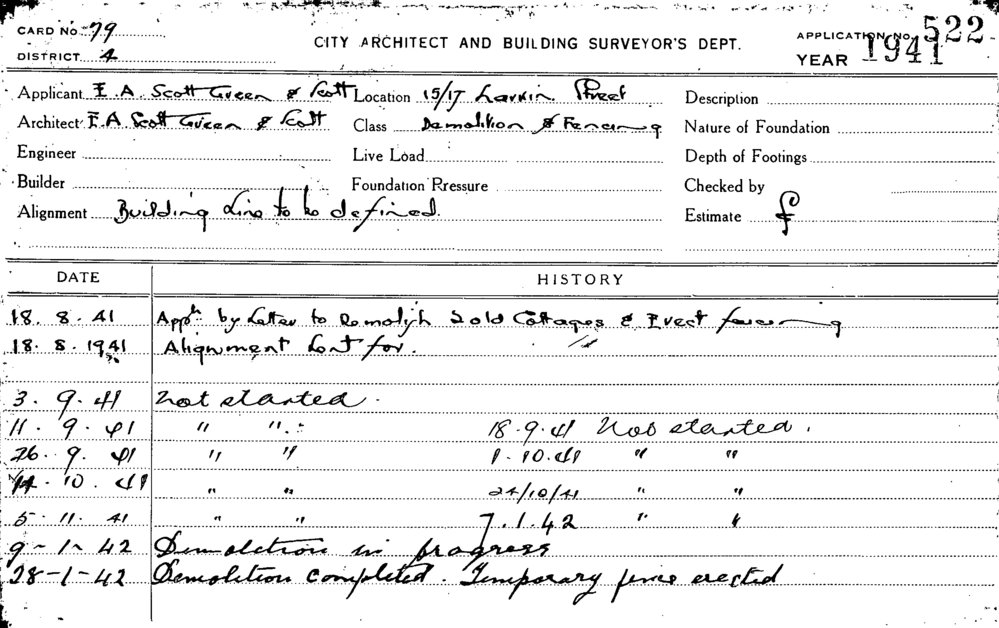 CARD NO. 79
DISTRICT 4
CITY ARCHITECT AND BUILDING SURVEYOR'S DEPT.
APPLICATION NO. 522
YEAR 1941
Applicant E. A. Scott Green & Scott Location 15/17 Larkin Street Description
Architect E.A Scott Green & Scott Class Demolition & Fencing Nature of Foundation
Engineer Live Load Depth of Footings
Builder Foundation Pressure Checked by
Alignment Building Line to be defined. Estimate £
DATE HISTORY
18. 8. 41 Appn. by Letter to Demolish 2 old Cottages & Erect fencing
18. 8. 1941 Alignment sent for.
3. 9. 41 Not started.
11. 9. 41 " " 18.9.41 Not started.
26. 9. 41 " " 1.10.41 " "
14. 10. 41 " " 24/10/41 " "
5. 11. 41 " " 7.1.42 " "
9-1-42 Demolition in progress
28-1-42 Demolition completed. Temporary fence erected